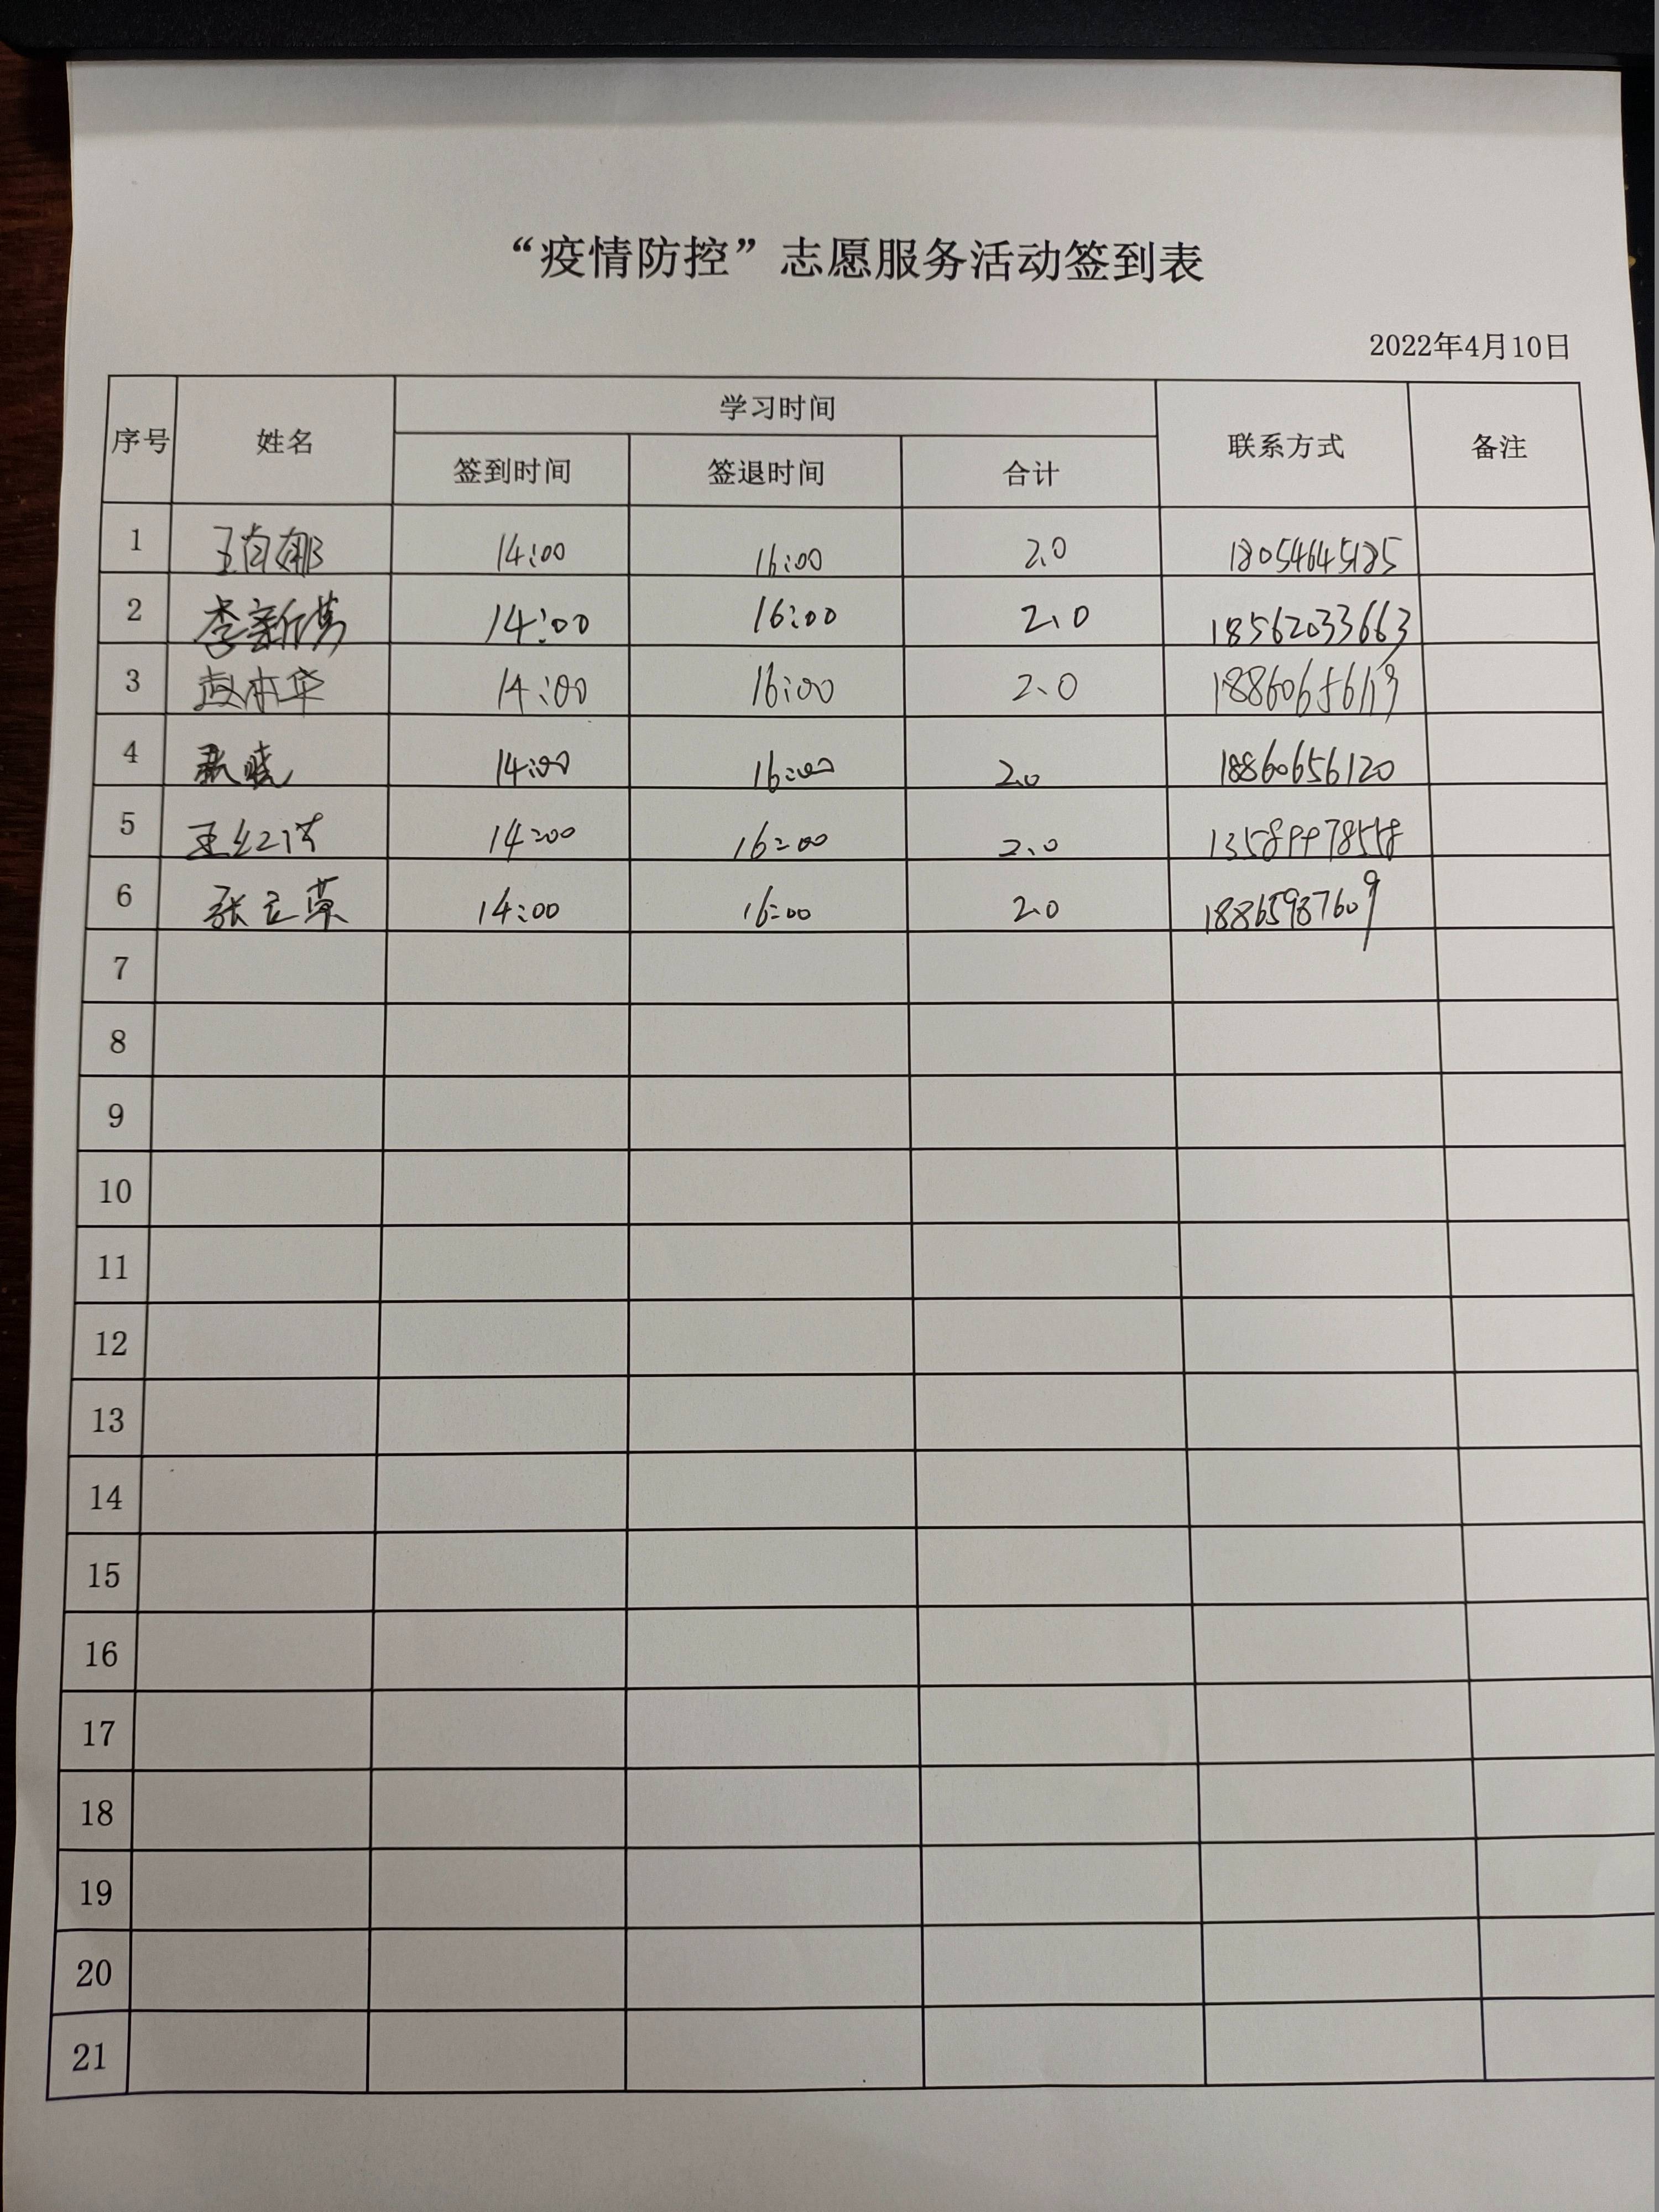 “疫情防控”志愿服务活动签到表
2022年4月10日
序号 姓名 学习时间 联系方式 备注
签到时间 签退时间 合计
1 王肖娜 14:00 16:00 2.0 18054645185
2 李新勇 14:00 16:00 2.0 18562033663
3 赵本华 14:00 16:00 2.0 18860656119
4 晓 14:00 16:00 2.0 18860656120
5 王红 14:00 16:00 2.0
6 张立 14:00 16:00 2.0 18865987609
7
8
9
10
11
12
13
14
15
16
17
18
19
20
21